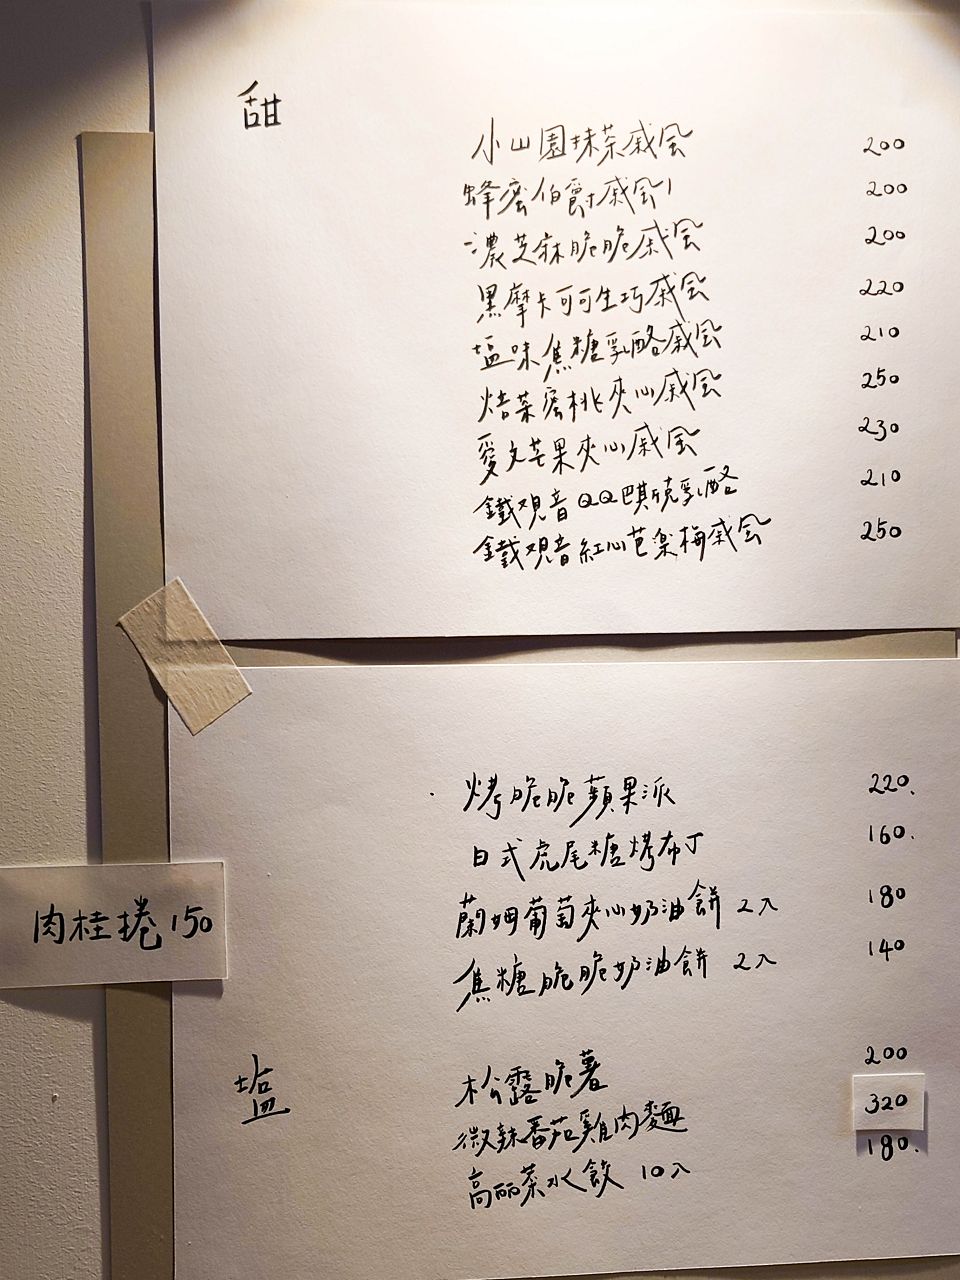 甜
小山園抹茶戚風 200
蜂蜜伯爵戚風 200
濃芝麻脆脆戚風 200
黑摩卡可可生巧戚風 220
塩味焦糖乳酪戚風 210
焙茶蜜桃夾心戚風 250
愛文芒果夾心戚風 230
鐵观音QQ巴斯克乳酪 210
鐵观音紅心芭樂梅戚風 250
烤脆脆蘋果派 220.
日式虎尾糖烤布丁 160.
蘭姆葡萄夾心奶油餅 2入 180
焦糖脆脆奶油餅 2入 140
肉桂捲 150
塩
松露脆薯 200
微辣番茄雞肉麵 320
高丽菜水餃 10入 180.